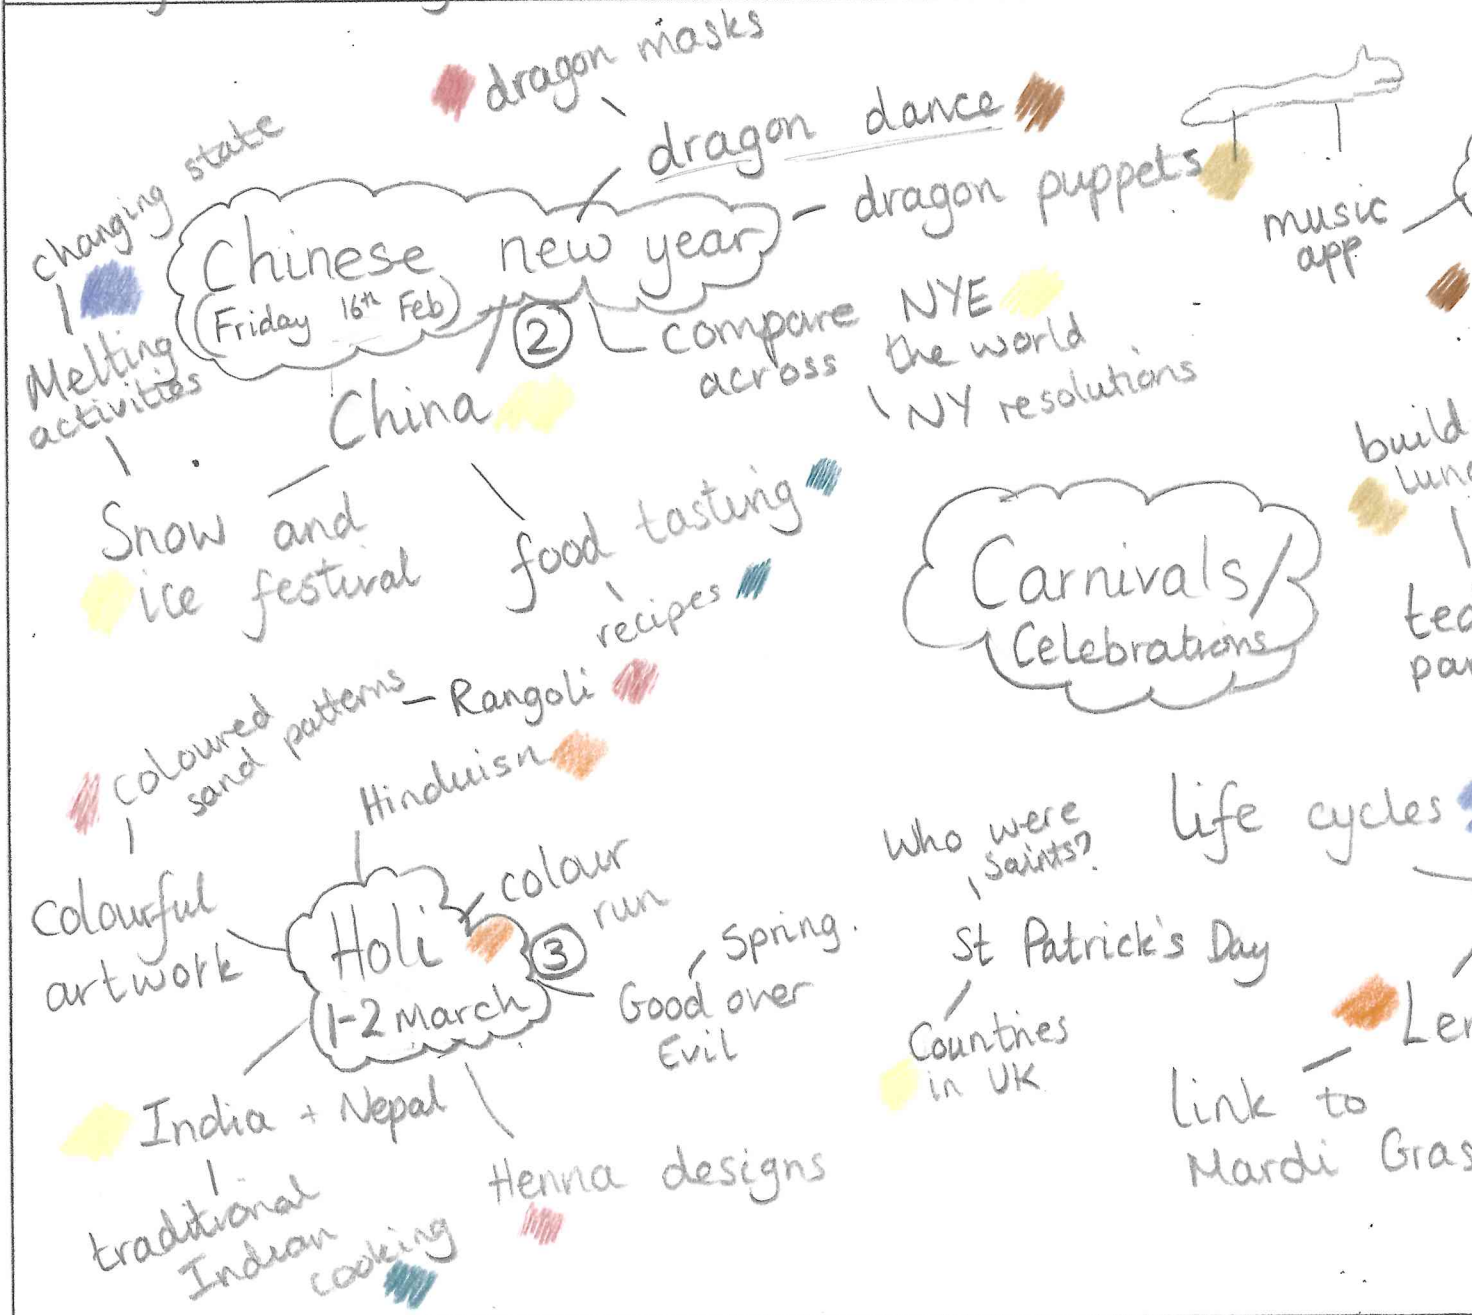 dragon masks
dragon dance
dragon puppets
music
app
changing state
Melting
activities
Chinese new year
(Friday 16th Feb)
2
compare NYE
across the world
NY resolutions
China
Snow and
ice festival
food tasting
recipes
build
Carnivals/
Celebrations
coloured
sand patterns
Rangoli
Hinduism
Colourful
artwork
Holi
1-2 March
3
colour
run
Spring.
Good over
Evil
India + Nepal
traditional
Indian
cooking
Henna designs
Who were
saints?
St Patrick's Day
Countries
in UK
life cycles
link to
Mardi Gras